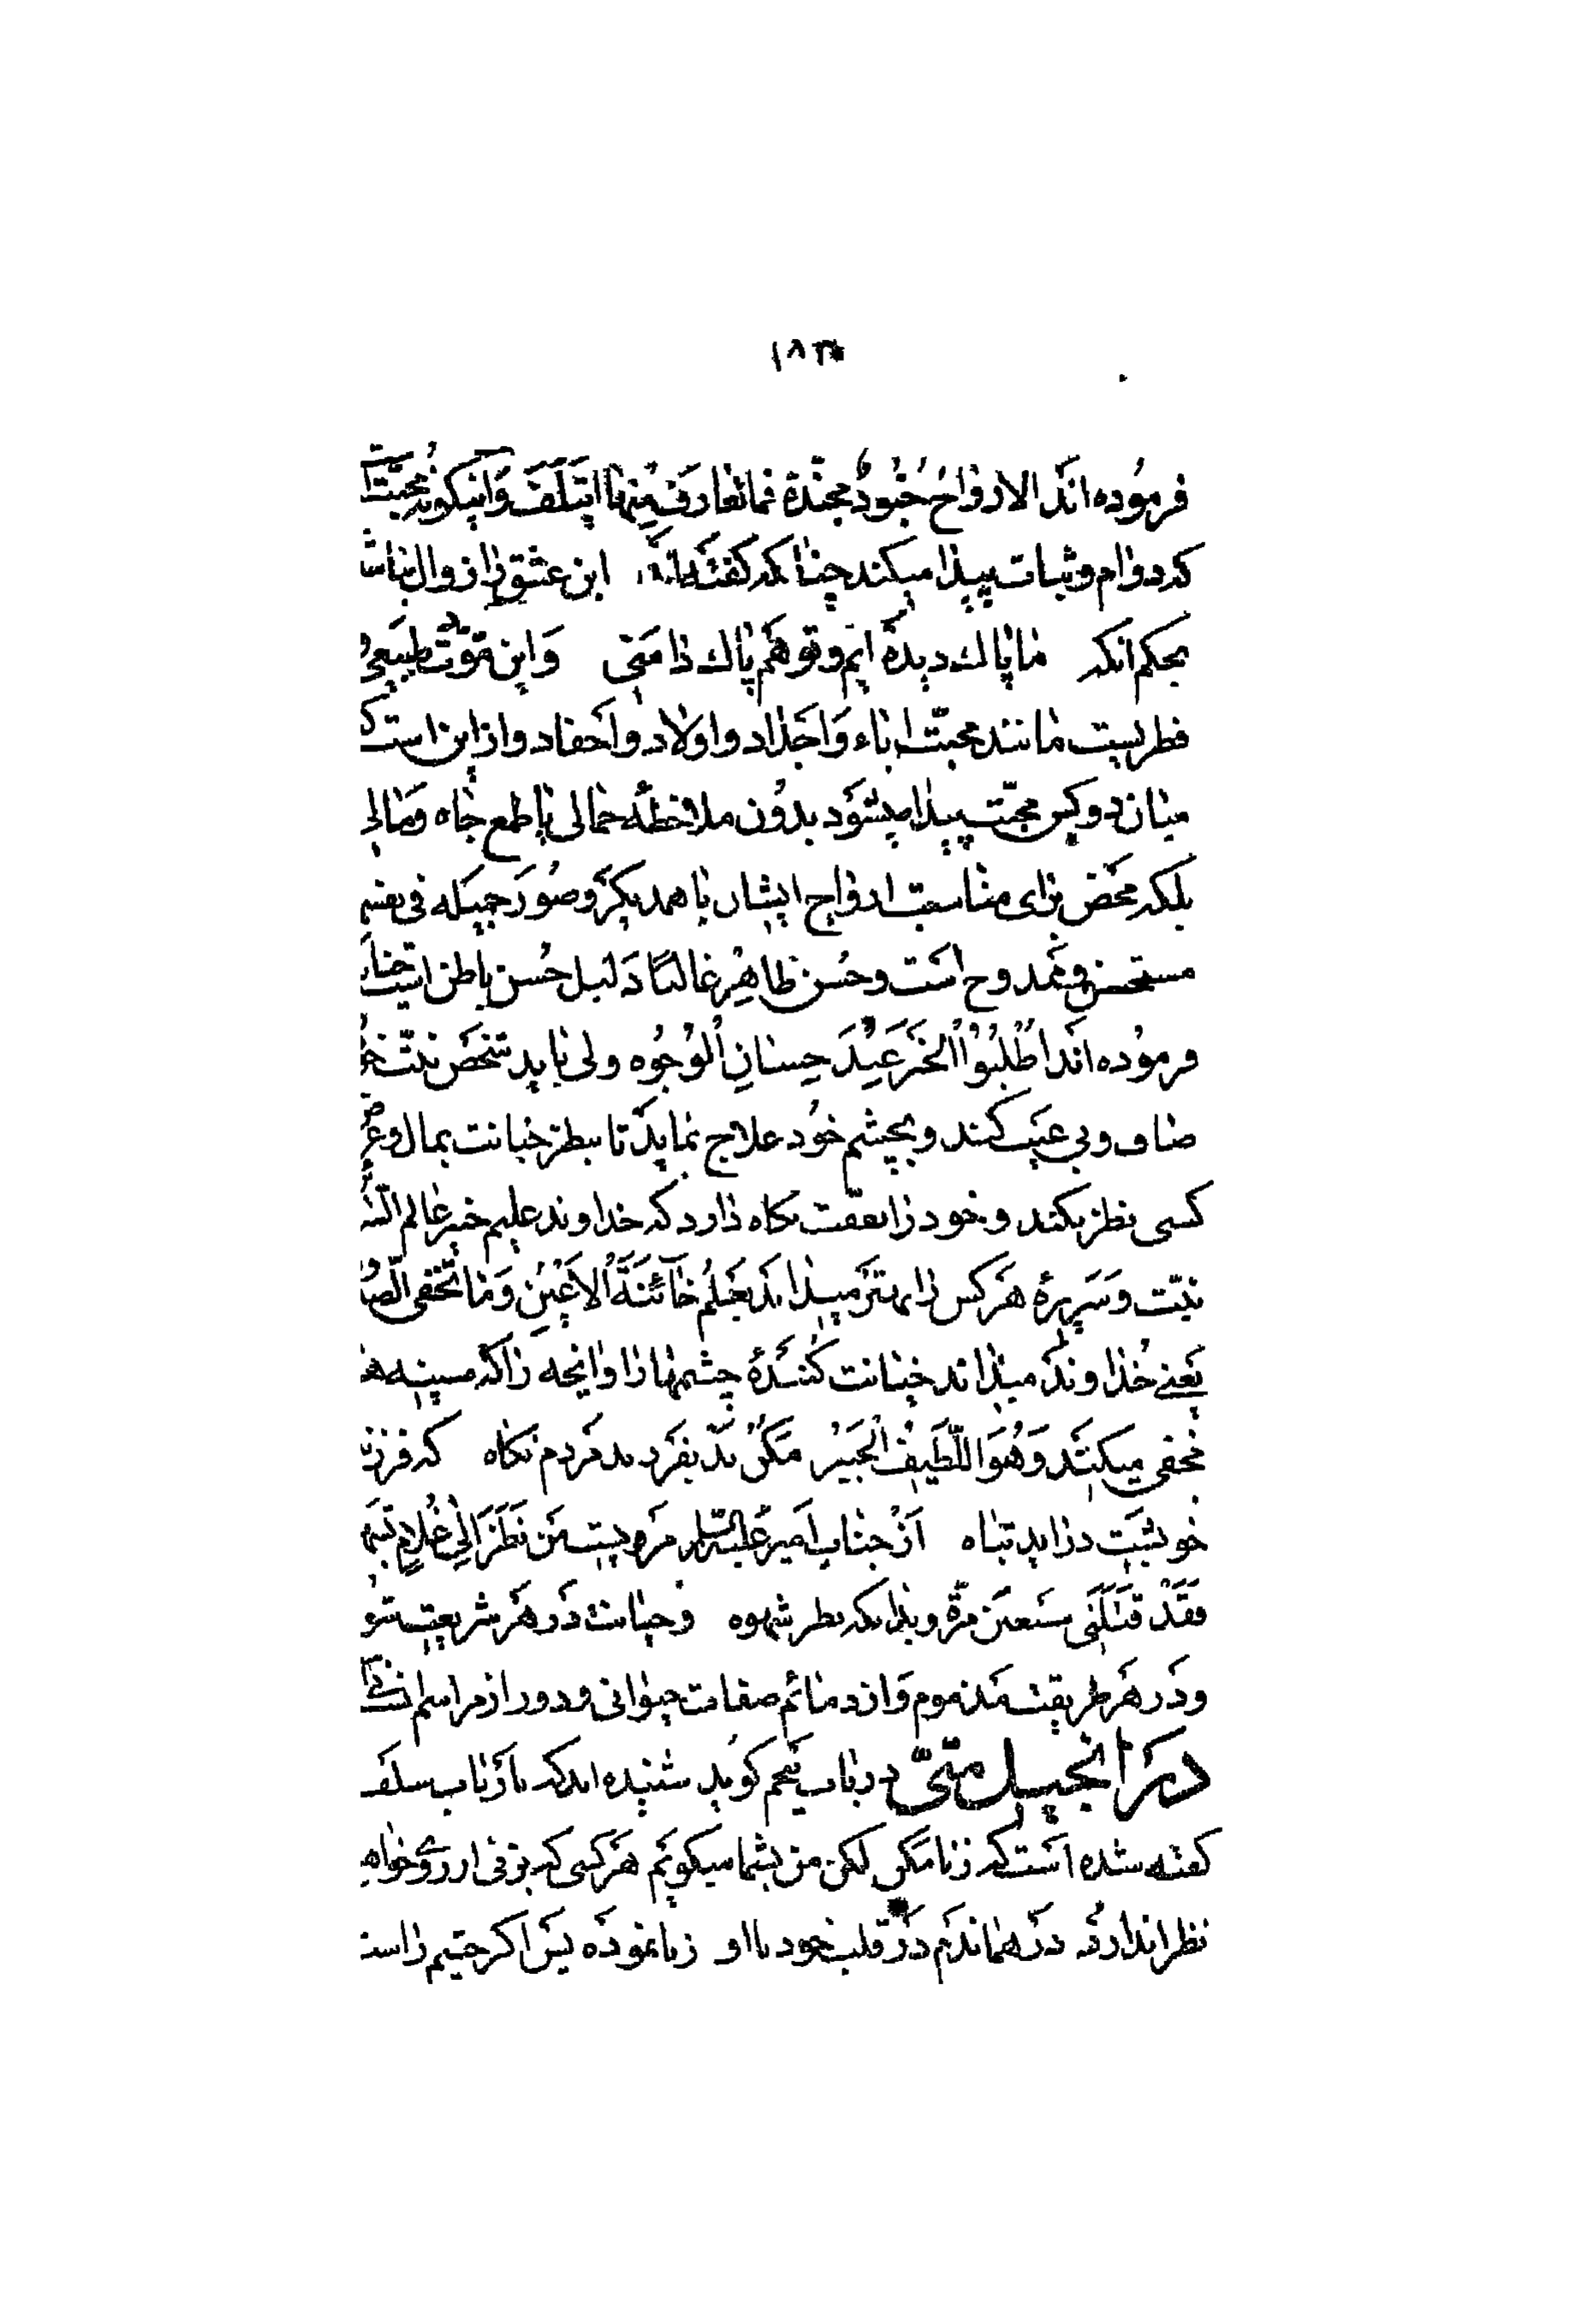 ۱۸۳
فرموده اند الارواح جُنُودٌ مجنّدة فما تعارف مِنها ائتَلَفَ وَاینگونه محبّت
که دوام و ثبات پیدا میکند چنانکه گفته‌اند این عشق را زوال نباشد
بحکم انکه ما پاک دیده ایم و تو هم پاک دامنی وَاین مودّت طبیعی و
فطریست مانند محبّت اباء وَاَجداد و اولاد و احفاد و از این است که
میان دو کس محبّت پیدا میشود بدون ملاحظهٔ جمالی یا طمع جاه و مالی
بلکه محض برای مناسبت ارواح ایشان با همدیگر و صُوَر جمیله فی نفسه
مستحسن و ممدوح است و حُسن ظاهِر غالبًا دَلیل حُسن باطن است چنانکه
فرموده اند اُطْلُبُوْا الخَیرَ عِنْدَ حِسانِ اْلوُجُوه ولی باید شخص نیّت خود
صاف و بی عیب کند و بچشم خود علاج نماید تا بنظر خیانت بمال و عرض
کسی نظر نکند و خود را بعفّت نگاه دارد که خداوند علیم خبیر عالم السّر
نیّت و سَریرهٔ هر کس را بهتر میداند یَعْلَمُ خآئِنَةَ اْلاَعْیُنِ وَما تُخْفی الصُّ
یَعنی خداوند میداند خیانت کنندهٔ چشمها را و انچه را که سینه ها
مخفی میکنند وَهُوَ اللَّطیفُ اْلخَبیرُ مَکُن بد بفرزند مردم نگاه که فرزند
خویشت دراید تباه از جناب امیر علیه‌السّلام مرویست مَن نَظَرَ اِلی غُلامٍ
فَقَدْ قَتَلَنی سَبعین مرّة و بدانکه نظر شهوه و خیانت در هر شریعت
و در هر طریقت مذموم و از دمائم صفات حیوانی و دور از مراسم
در انجیل متّی در باب پنجم گوید شنیده اید که به ارباب سلف
گفته شده است که زنا مکن لکن من بشما میگویم هر کسی که بزنی از روی خواهش
نظر اندازد در همان دم در قلب خود با او زنا نموده پس اگر چشم راست